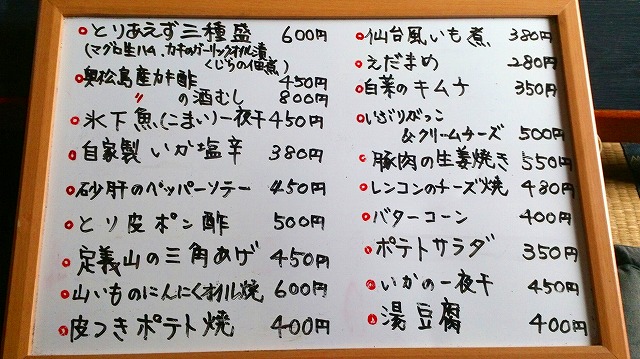 とりあえず三種盛 600円
(マグロ生ハム、カキのガーリックオイル漬
くじらの佃煮)
奥松島産カキ酢 450円
〃 の酒むし 800円
氷下魚(こまい)一夜干 450円
自家製いか塩辛 380円
砂肝のペッパーソテー 450円
とり皮ポン酢 500円
定義山の三角あげ 450円
山いものにんにくオイル焼 600円
皮つきポテト焼 400円
仙台風いも煮 380円
えだまめ 280円
白菜のキムチ 350円
いぶりがっこ
&クリームチーズ 500円
豚肉の生姜焼き 550円
レンコンのチーズ焼 480円
バターコーン 400円
ポテトサラダ 350円
いかの一夜干 450円
湯豆腐 400円